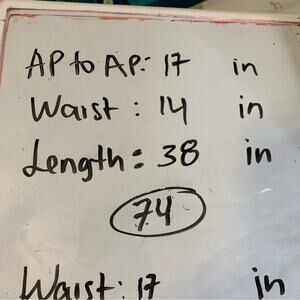 AP to AP: 17 in
Waist : 14 in
Length : 38 in
74
Waist: 17 in